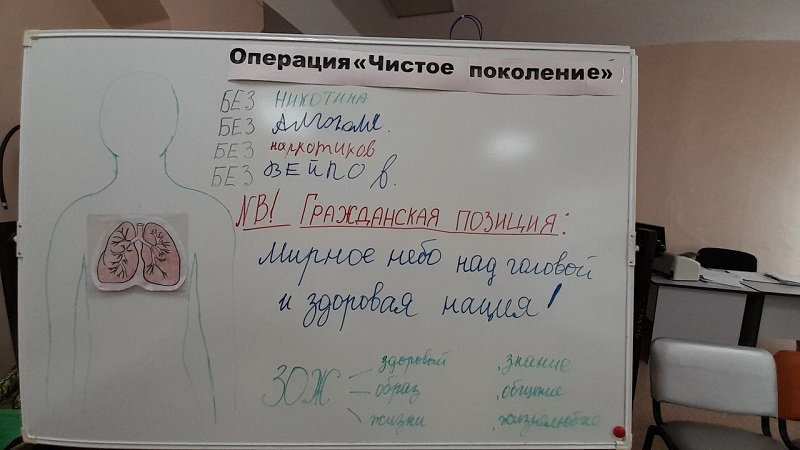 Операция «Чистое поколение»
БЕЗ НИКОТИНА
БЕЗ Алкоголя.
БЕЗ наркотиков
БЕЗ ВЕЙПОВ.
NB! ГРАЖДАНСКАЯ ПОЗИЦИЯ:
Мирное небо над головой
и здоровая нация!
ЗОЖ
здоровый знание
образ общение
жизни жизнелюбие